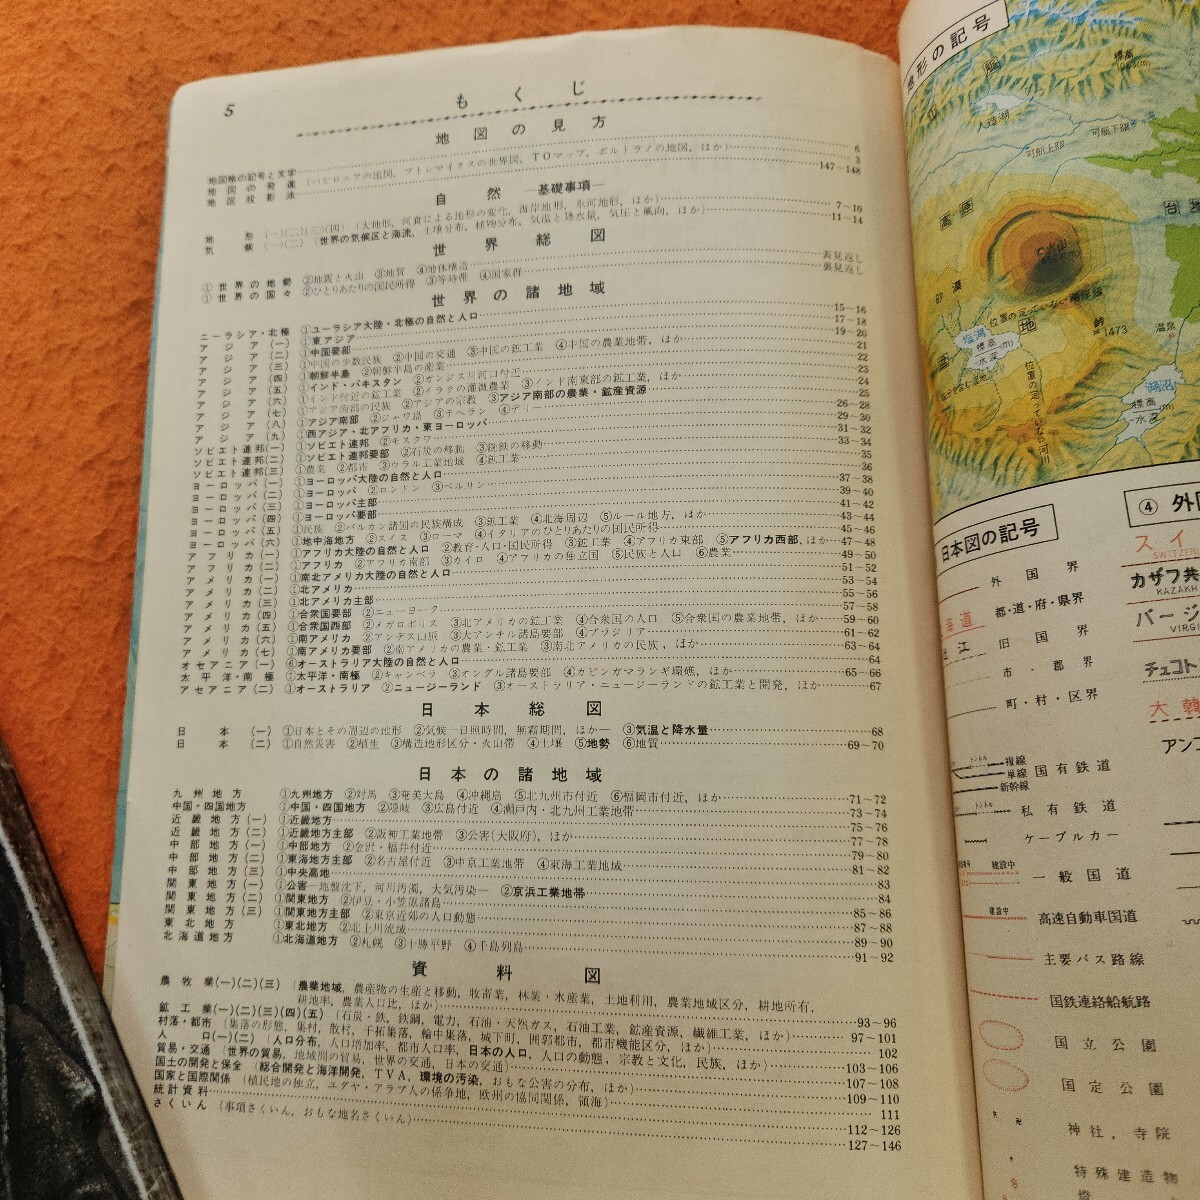 5
もくじ
地図の見方
地図帳の記号と文字 6
地図の発達 (バビロニアの地図, プトレマイオスの世界図, TOマップ, ポルトラノの地図, ほか) 3
地図投影法 147~148
自然 ―基礎事項―
地形 (一)(二)(三)(四) (大地形, 河食による地形の変化, 海岸地形, 氷河地形, ほか) 7~10
気候 (一)(二) (世界の気候区と海流, 土壌分布, 植物分布, 気温と降水量, 気圧と風向, ほか) 11~14
世界総図
①世界の地勢 ②地震と火山 ③地質 ④地体構造 表見返し
①世界の国々 ②ひとりあたりの国民所得 ③等時帯 ④国家群 裏見返し
世界の諸地域
ユーラシア・北極 ①ユーラシア大陸・北極の自然と人口 15~16
アジア(一) ①東アジア 17~18
アジア(二) ①中国要部 19~20
アジア(三) ①中国の少数民族 ②中国の交通 ③中国の鉱工業 ④中国の農業地帯, ほか 21
アジア(四) ①朝鮮半島 ②朝鮮半島の産業 22
アジア(五) ①インド・パキスタン ②ガンジス川河口付近 23
アジア(六) ①インド付近の鉱工業 ②イラクの灌漑農業 ③インド南東部の鉱工業, ほか 24
アジア(七) ①アジア南部の民族 ②アジアの宗教 ③アジア南部の農業・鉱産資源 25
アジア(八) ①アジア南部 ②ジャワ島 ③テヘラン ④デリー 26~28
アジア(九) ①西アジア・北アフリカ・東ヨーロッパ 29~30
ソビエト連邦(一) ①ソビエト連邦 ②モスクワ 31~32
ソビエト連邦(二) ①ソビエト連邦要部 ②石炭の移動 ③鉄鉄の移動 33~34
ソビエト連邦(三) ①農業 ②都市 ③ウラル工業地域 ④鉱工業 35
ヨーロッパ(一) ①ヨーロッパ大陸の自然と人口 36
ヨーロッパ(二) ①ヨーロッパ ②ロンドン ③ベルリン 37~38
ヨーロッパ(三) ①ヨーロッパ主部 39~40
ヨーロッパ(四) ①ヨーロッパ要部 41~42
ヨーロッパ(五) ①民族 ②バルカン諸国の民族構成 ③鉱工業 ④北海周辺 ⑤ルール地方, ほか 43~44
ヨーロッパ(六) ①地中海地方 ②スイス ③ローマ ④イタリアのひとりあたりの国民所得 45~46
アフリカ(一) ①アフリカ大陸の自然と人口 ②教育・人口・国民所得 ③鉱工業 ④アフリカ東部 ⑤アフリカ西部, ほか 47~48
アフリカ(二) ①アフリカ ②アフリカ南部 ③カイロ ④アフリカの独立国 ⑤民族と人口 ⑥農業 49~50
アメリカ(一) ①南北アメリカ大陸の自然と人口 51~52
アメリカ(二) ①北アメリカ 53~54
アメリカ(三) ①北アメリカ主部 55~56
アメリカ(四) ①合衆国要部 ②ニューヨーク 57~58
アメリカ(五) ①合衆国西部 ②メガロポリス ③北アメリカの鉱工業 ④合衆国の人口 ⑤合衆国の農業地帯, ほか 59~60
アメリカ(六) ①南アメリカ ②アンデス山脈 ③大アンチル諸島要部 ④ブラジリア 61~62
アメリカ(七) ①南アメリカ要部 ②南アメリカの農業・鉱工業 ③南北アメリカの民族, ほか 63~64
オセアニア(一) ⑥オーストラリア大陸の自然と人口 64
太平洋・南極 ①太平洋・南極 ②キャンベラ ③オングル諸島要部 ④カピンガマランギ環礁, ほか 65~66
アセアニア(二) ①オーストラリア ②ニュージーランド ③オーストラリア・ニュージーランドの鉱工業と開発, ほか 67
日本総図
日本(一) ①日本とその周辺の地形 ②気候―日照時間, 無霜期間, ほか― ③気温と降水量 68
日本(二) ①自然災害 ②植生 ③構造地形区分・火山帯 ④土壌 ⑤地勢 ⑥地質 69~70
日本の諸地域
九州地方 ①九州地方 ②対馬 ③奄美大島 ④沖縄島 ⑤北九州市付近 ⑥福岡市付近, ほか 71~72
中国・四国地方 ①中国・四国地方 ②隠岐 ③広島付近 ④瀬戸内・北九州工業地帯 73~74
近畿地方(一) ①近畿地方 75~76
近畿地方(二) ①近畿地方主部 ②阪神工業地帯 ③公害(大阪府), ほか 77~78
中部地方(一) ①中部地方 ②金沢・福井付近 79~80
中部地方(二) ①東海地方主部 ②名古屋付近 ③中京工業地帯 ④東海工業地域 81~82
中部地方(三) ①中央高地 83
関東地方(一) ①公害―地盤沈下, 河川汚濁, 大気汚染― ②京浜工業地帯 84
関東地方(二) ①関東地方 ②伊豆・小笠原諸島 85~86
関東地方(三) ①関東地方主部 ②東京近郊の人口動態 87~88
東北地方 ①東北地方 ②北上川流域 89~90
北海道地方 ①北海道地方 ②札幌 ③十勝平野 ④千島列島 91~92
資料図
農牧業(一)(二)(三) (農業地域, 農産物の生産と移動, 牧畜業, 林業・水産業, 土地利用, 農業地域区分, 耕地所有,
耕地率, 農業人口比, ほか) 93~96
鉱工業(一)(二)(三)(四)(五) (石炭・鉄, 鉄鋼, 電力, 石油・天然ガス, 石油工業, 鉱産資源, 繊維工業, ほか) 97~101
村落・都市 (集落の形態, 集村, 散村, 干拓集落, 輪中集落, 城下町, 囲郭都市, 都市機能区分, ほか) 102
人口(一)(二) (人口分布, 人口増加率, 都市人口率, 日本の人口, 人口の動態, 宗教と文化, 民族, ほか) 103~106
貿易・交通 (世界の貿易, 地域間の貿易, 世界の交通, 日本の交通) 107~108
国土の開発と保全 (総合開発と海洋開発, TVA, 環境の汚染, おもな公害の分布, ほか) 109~110
国家と国際関係 (植民地の独立, ユダヤ・アラブ人の係争地, 欧州の協同関係, 領海) 111
統計資料 112~126
さくいん (事項さくいん, おもな地名さくいん) 127~146
地形の記号
人造湖
標高
可航下限
可航上限
高原
台地
火山
砂漠
位置の定っていない湖岸線
塩湖
標高(m)
水深
盆地
峠1473
温泉
位置の定っていない河川
湖沼
標高(m)
水深
日本図の記号
外国界
都・道・府・県界
旧国界
市・郡界
町・村・区界
トンネル
複線
単線
新幹線
国有鉄道
トンネル
私有鉄道
ケーブルカー
建設中
一般国道
建設中
高速自動車国道
主要バス路線
国鉄連絡船航路
国立公園
国定公園
神社, 寺院
特殊建造物
④外
スイ
SWITZER
カザフ共
KAZAKH
バージ
VIRG
チェコト
大韓
アンコ